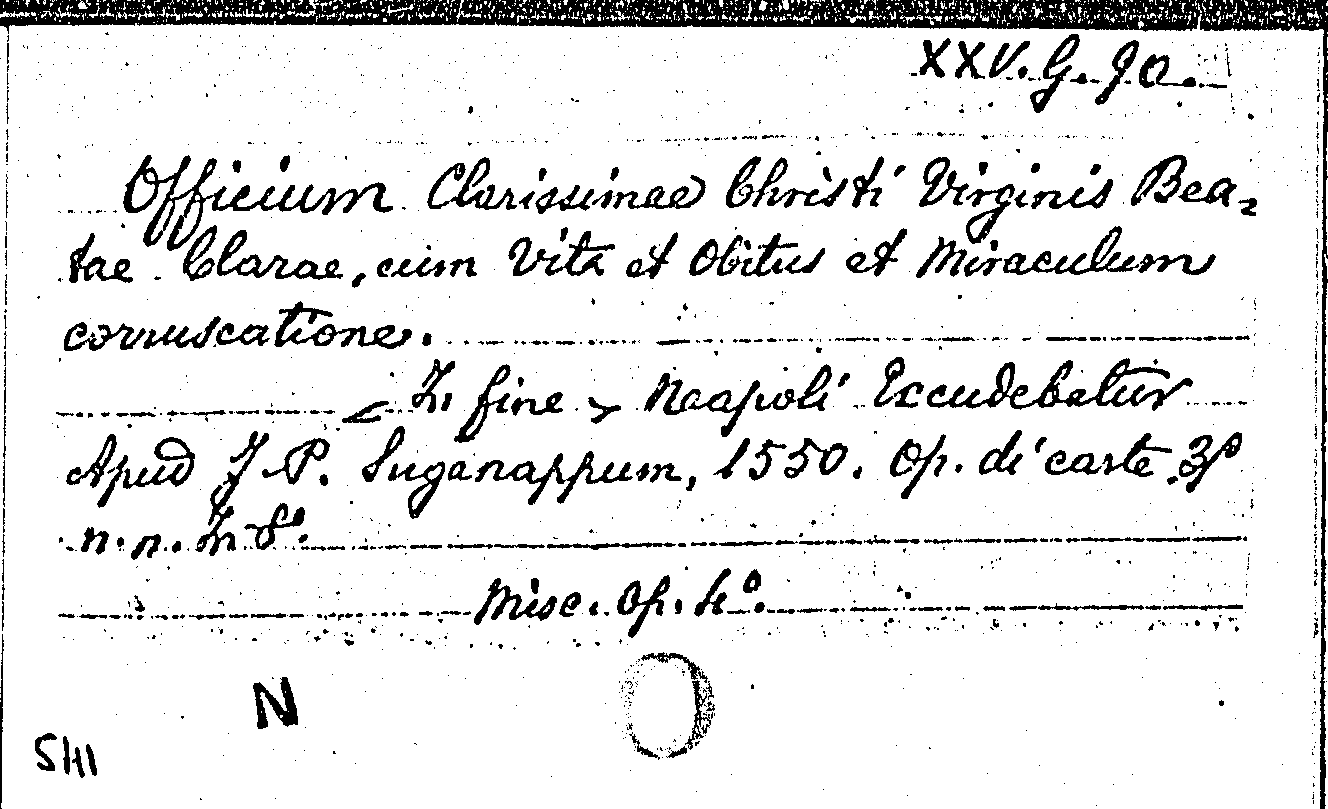 XXV. G. 90.
Officium Clarissimae Christi Virginis Bea-
tae Clarae, cum Vita et Obitus et Miraculum
corruscatione.
< In fine > Neapoli Excudebatur
Apud J. P. Suganappum, 1550. Op. di carte
n. n. In 8°.
Misc. Op. 4°.
N